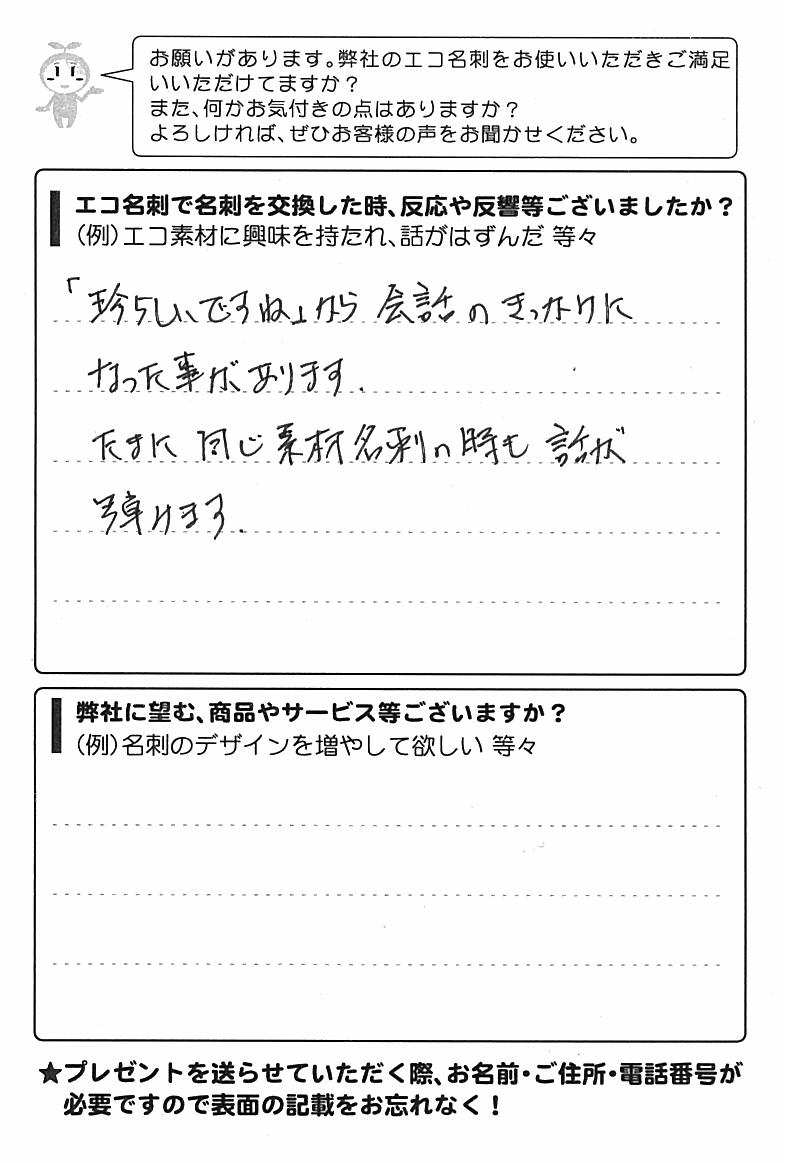 お願いがあります。弊社のエコ名刺をお使いいただきご満足
いいただけてますか？
また、何かお気付きの点はありますか？
よろしければ、ぜひお客様の声をお聞かせください。
エコ名刺で名刺を交換した時、反応や反響等ございましたか？
（例）エコ素材に興味を持たれ、話がはずんだ 等々
「珍らしいですね」から 会話の きっかけに
なった事が、あります．
たまに 同じ素材名刺の時も 話が
弾けます．
弊社に望む、商品やサービス等ございますか？
（例）名刺のデザインを増やして欲しい 等々
★プレゼントを送らせていただく際、お名前・ご住所・電話番号が
必要ですので表面の記載をお忘れなく！